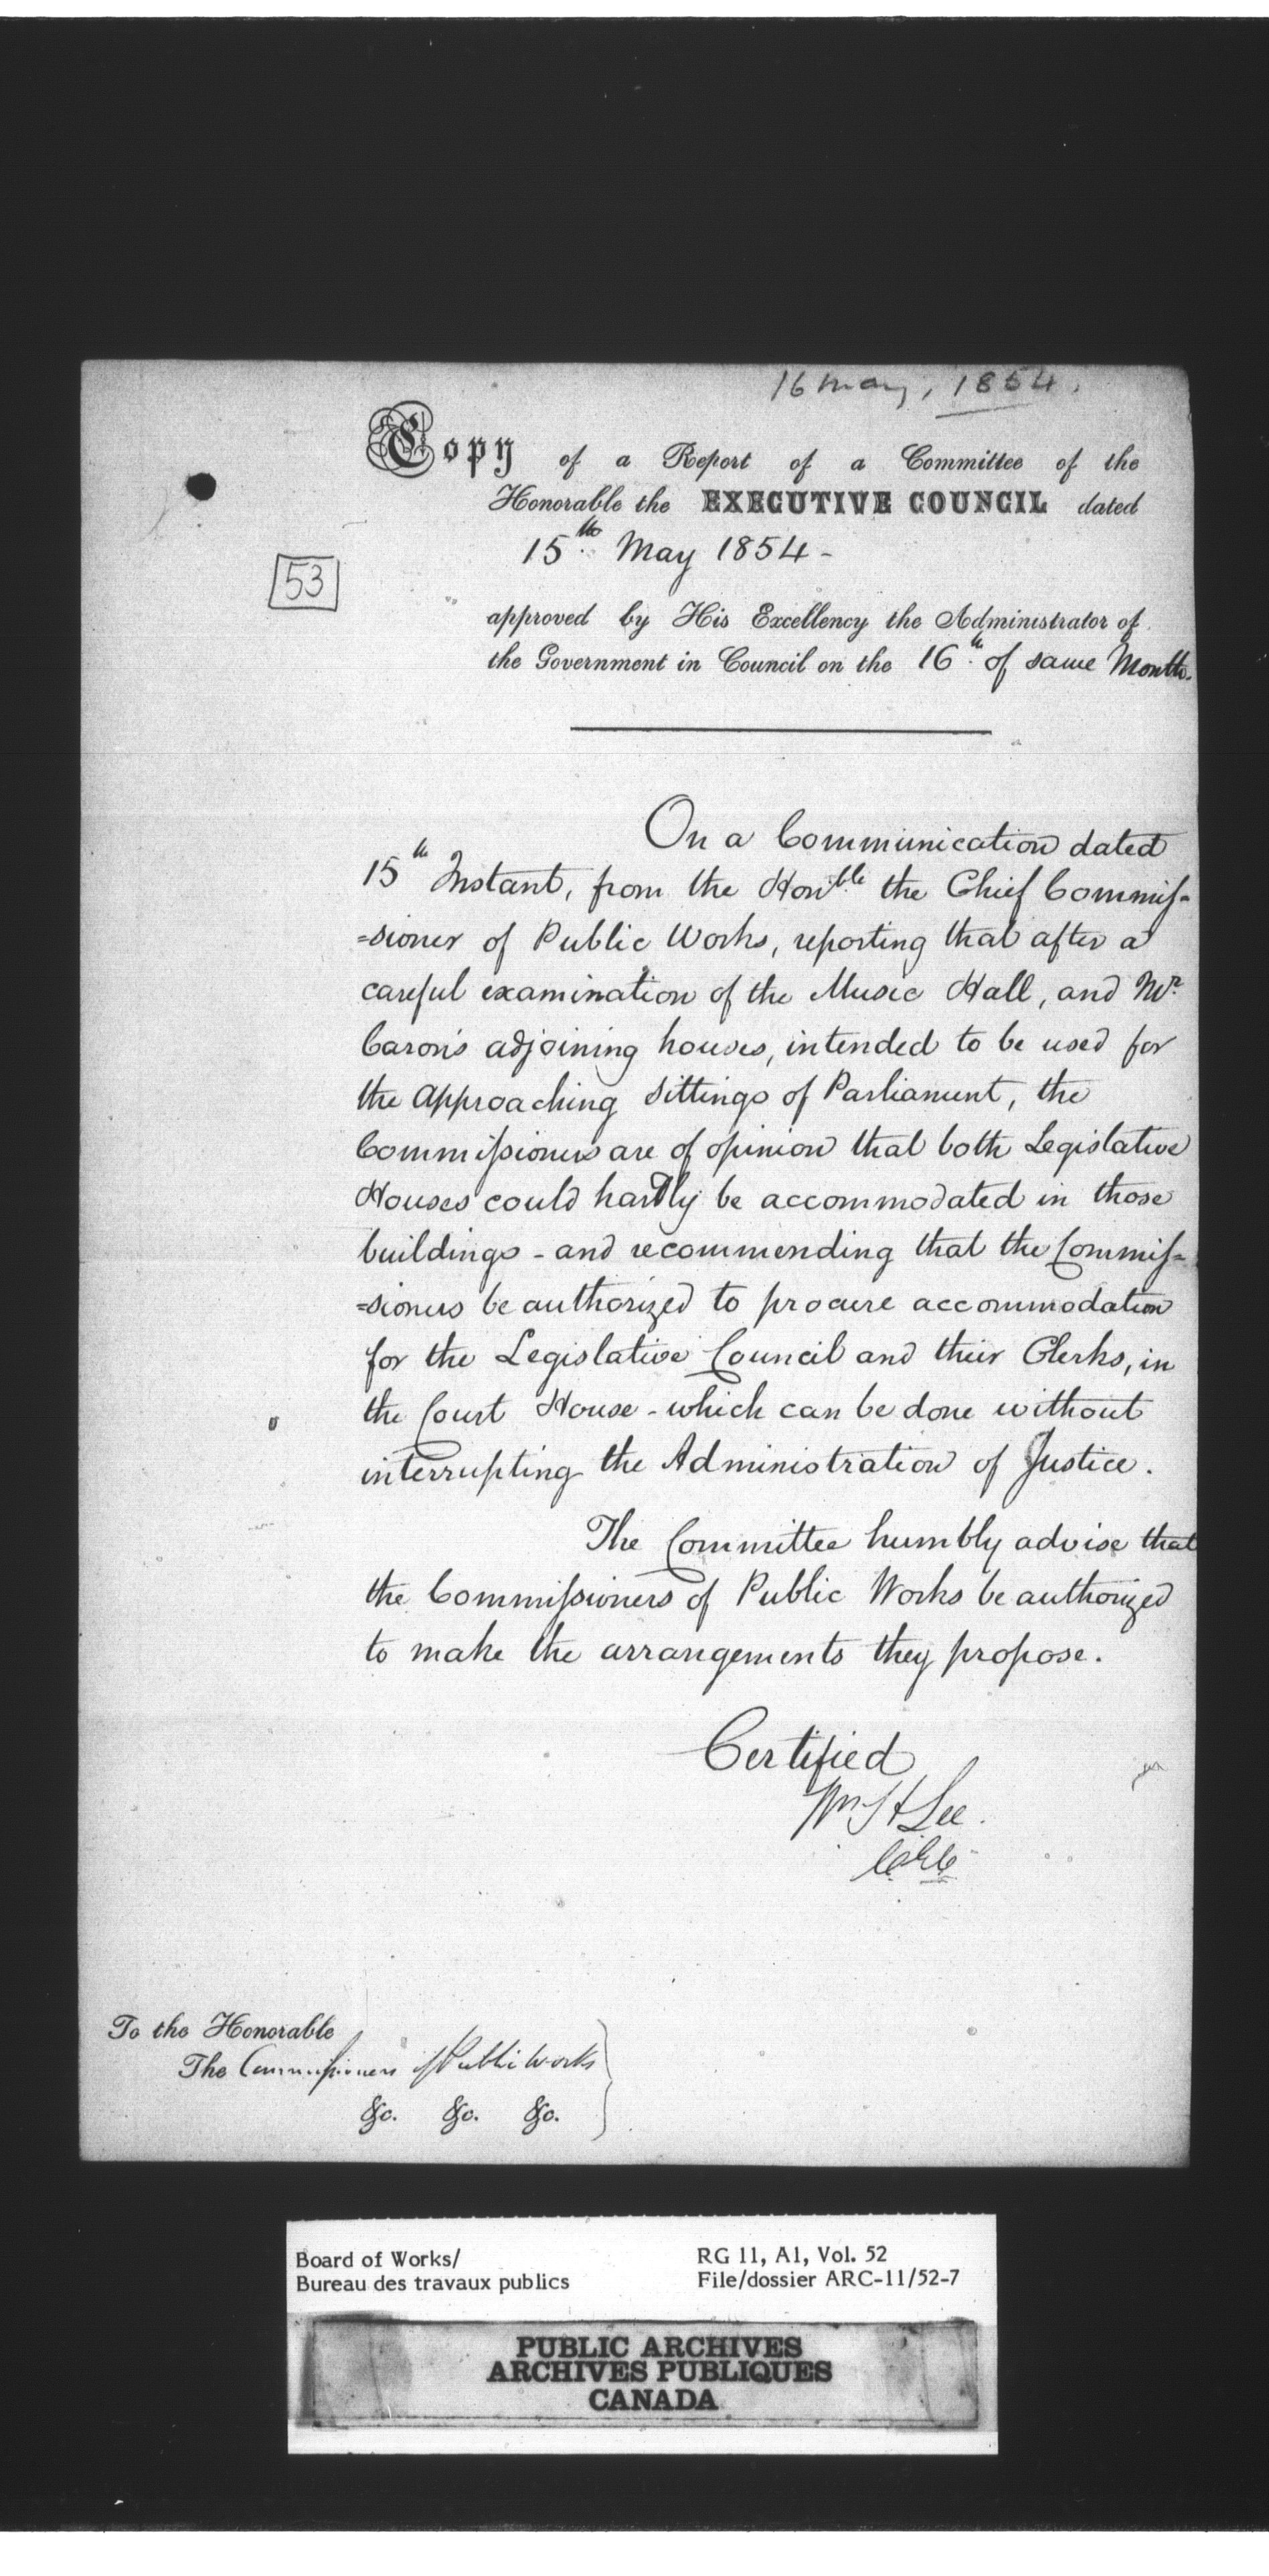 16 May, 1854.
Copy of a Report of a Committee of the
Honorable the EXECUTIVE COUNCIL dated
15th May 1854 -
53
approved by His Excellency the Administrator of
the Government in Council on the 16th of same Month.
On a Communication dated
15th Instant, from the Honble the Chief Commis-
=sioner of Public Works, reporting that after a
careful examination of the Music Hall, and Mr.
Caron's adjoining houses, intended to be used for
the approaching sittings of Parliament, the
Commissioners are of opinion that both Legislative
Houses could hardly be accommodated in those
buildings - and recommending that the Commis-
=sioners be authorized to procure accommodation
for the Legislative Council and their Clerks, in
the Court House - which can be done without
interrupting the Administration of Justice.
The Committee humbly advise that
the Commissioners of Public Works be authorized
to make the arrangements they propose.
Certified
Wm H Lee.
To the Honorable
The Commissioners of Public Works
&c. &c. &c.
Board of Works/
Bureau des travaux publics
RG 11, A1, Vol. 52
File/dossier ARC-11/52-7
PUBLIC ARCHIVES
ARCHIVES PUBLIQUES
CANADA